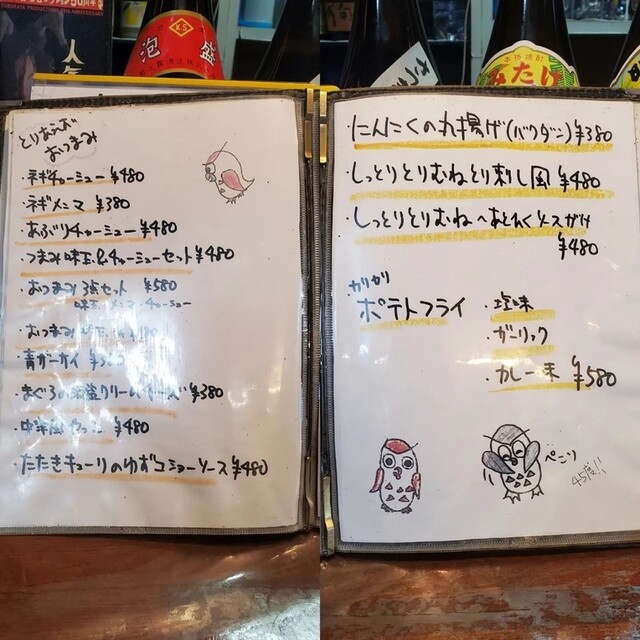 人気
K.S
泡盛
さつ
本格焼酎
みたけ
とりあえず
おつまみ
・ネギチャーシュー ¥480
・ネギメンマ ¥380
・あぶりチャーシュー ¥480
・つまみ味玉&チャーシューセット ¥480
・おつまみ3点セット ¥580
味玉 メンマ チャーシュー
・おつまみ
・まぐろの酒盗クリームチーズ ¥380
¥480
・たたきキューリのゆずコショーソース ¥480
・にんにくの丸揚げ(バクダン) ¥380
・しっとりとりむねとり刺し風 ¥480
・しっとりとりむね
ソースがけ
¥480
・カリカリ
ポテトフライ
・塩味
・ガーリック
・カレー味 ¥580
ペコリ
45度!!